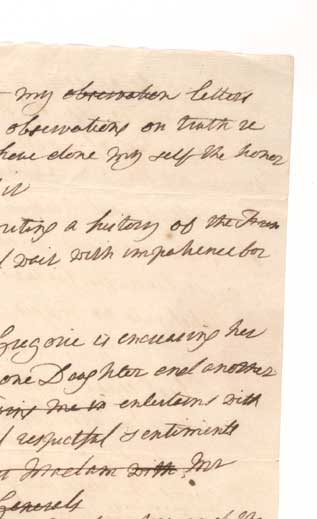 my observation letters
observations on truth re
have done my self the honor
it
writing a history of the Fren
wait with impatience for
Gregorie is encreasing her
one Daughter and another
me in entertains with
respectful sentiments
Madam with Mr
Generals